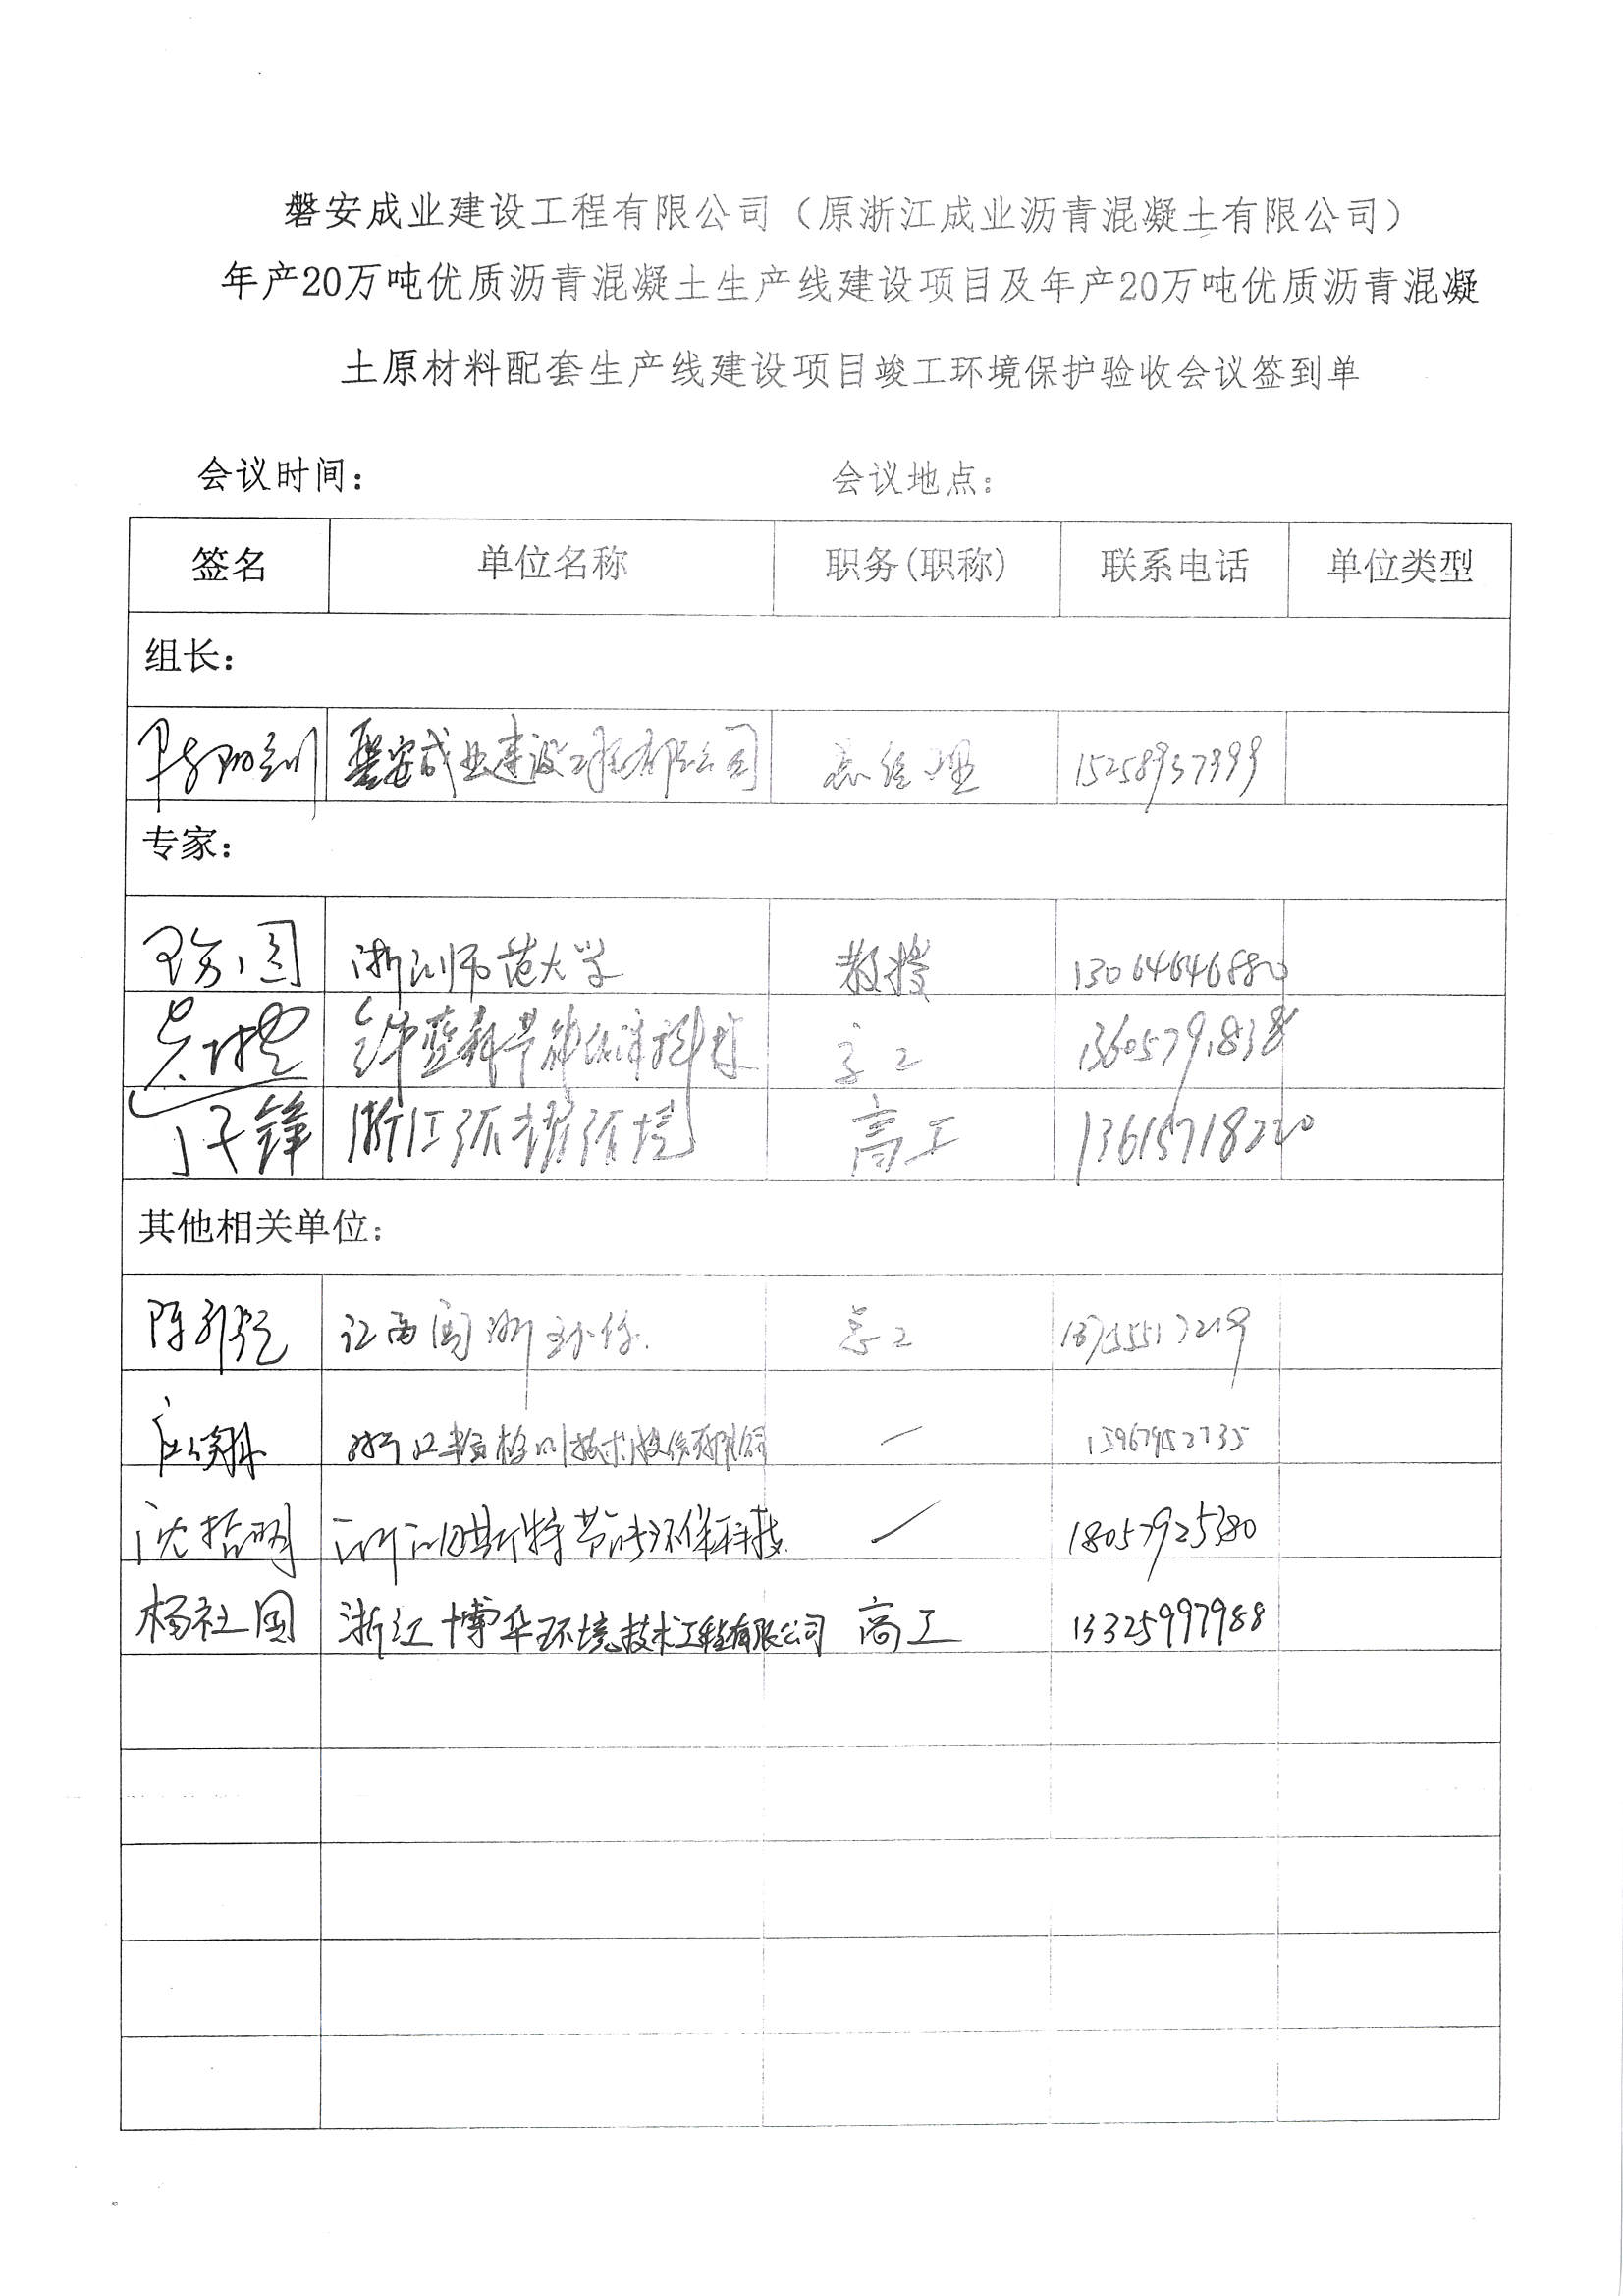 磐安成业建设工程有限公司（原浙江成业沥青混凝土有限公司）
年产20万吨优质沥青混凝土生产线建设项目及年产20万吨优质沥青混凝
土原材料配套生产线建设项目竣工环境保护验收会议签到单
会议时间： 会议地点：
签名 单位名称 职务(职称) 联系电话 单位类型
组长：
磐安成业建设工程有限公司 总经理 15258937999
专家：
浙江师范大学 教授 13064646880
13605791838
浙江 环境 高工 13615718220
其他相关单位：
陈 江西闽浙环保 总工
浙江 检测技术股份有限公司 一 15967952735
沈哲明 斯特节能环保科技 一 18057925380
杨社国 浙江博华环境技术工程有限公司 高工 13325997988